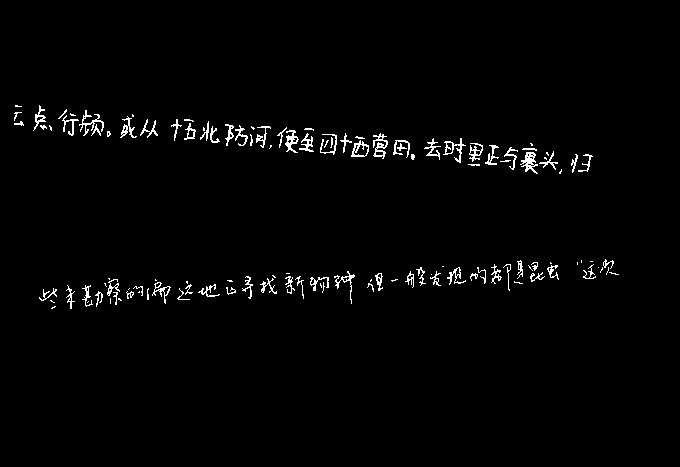 云点行频。或从十五北防河,便至四十西营田。去时里正与裹头,归
些未勘察的偏远地区寻找新物种 但一般发现的都是昆虫 "这次